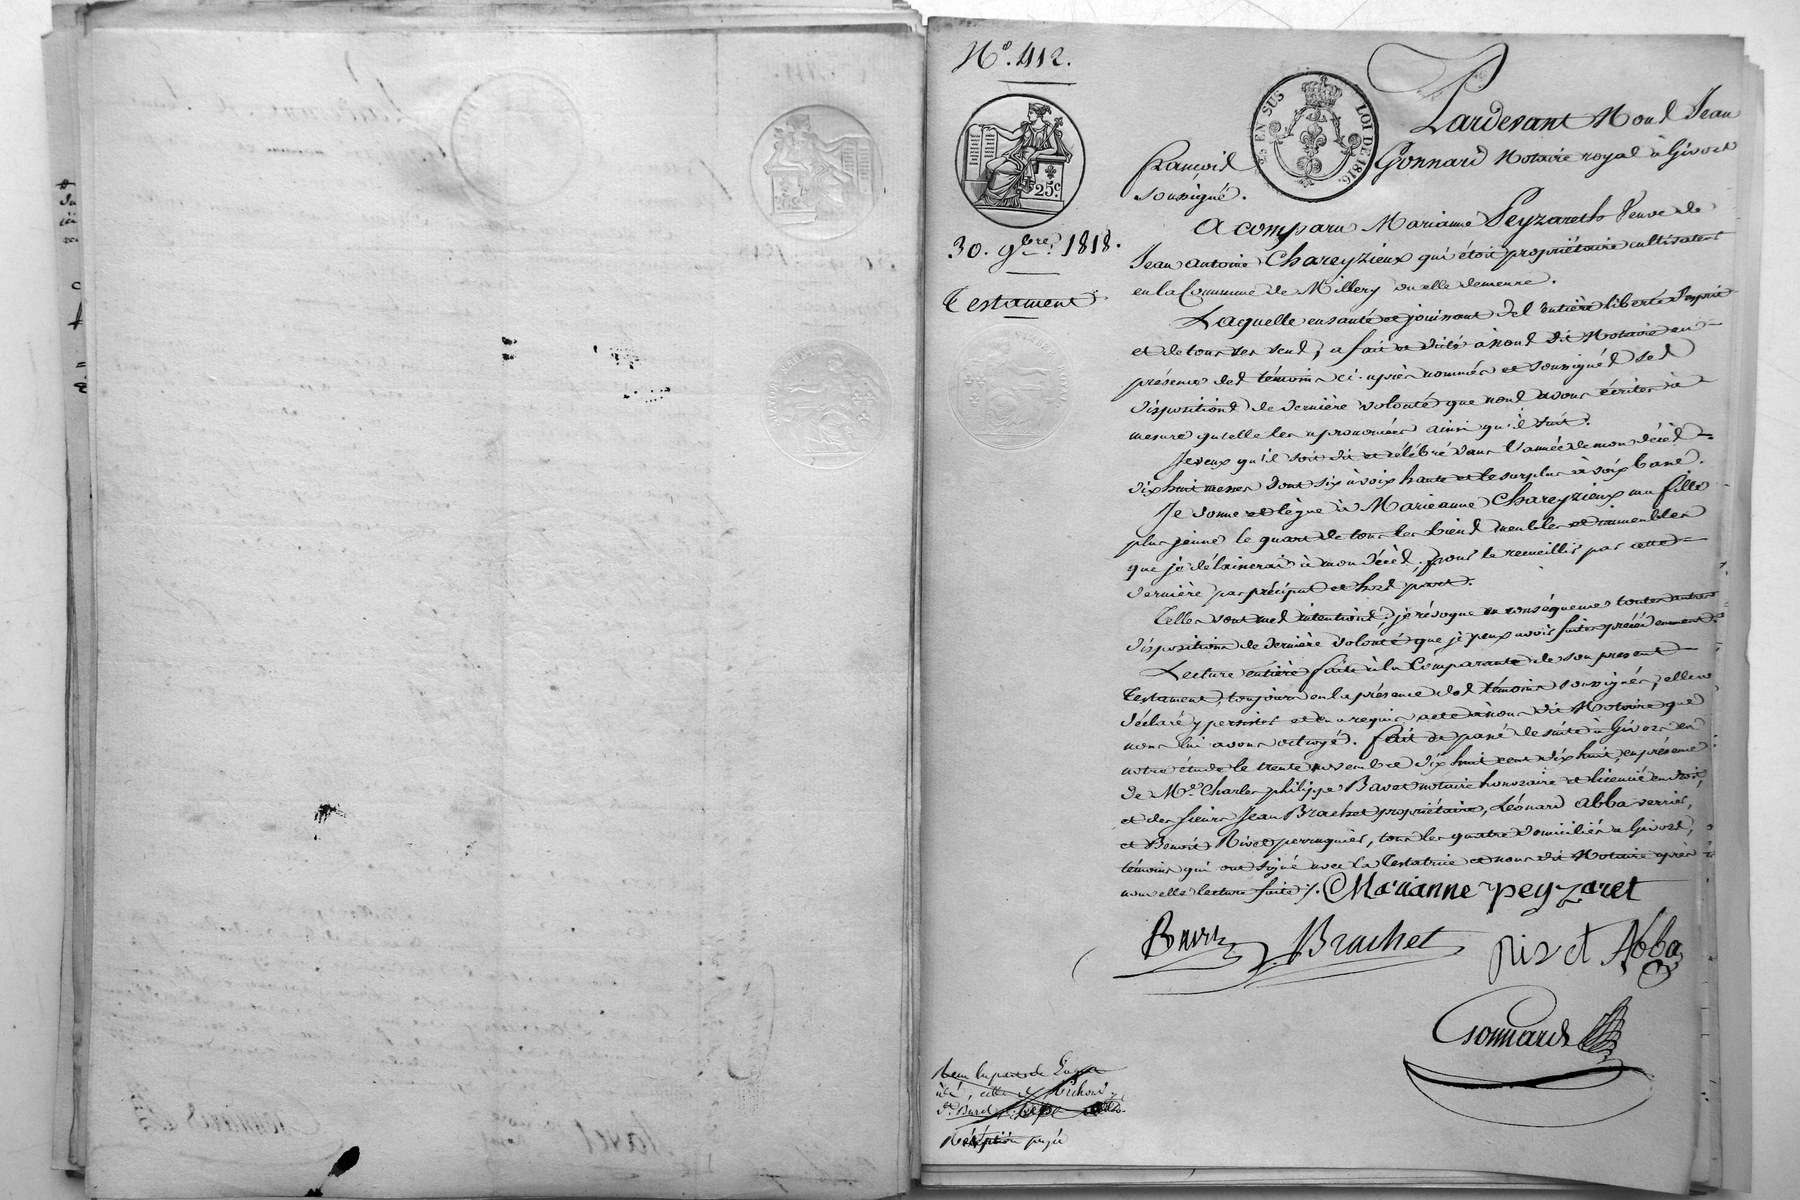 N.º 412.
EN SUS
LOI DE 1816.
25.c
30. 9bre. 1818.
Testament
Pardevant Nous Jean
François Gonnard Notaire royal à Givors
soussigné.
A comparu Marianne Peyzareth Veuve de
Jean Antoine Chareyzieux qui étoit propriétaire cultivateur
en la Commune de Millery ou elle demeure.
Laquelle en santé et jouissant de l'entière liberté d'esprit
et de tous ses sens, a fait et dicté à nous dit Notaire en
présence des témoins ci-après nommés et soussignés ses
dispositions de dernière volonté que nous avons écrites à
mesure qu'elle les a prononcées ainsi qu'il suit.
Je veux qu'il soit dit et célébré dans l'année de mon décès
dix huit messes dont six à voix haute et le surplus à voix basse.
Je donne et lègue à Marieanne Chareyzieux ma fille
plus jeune le quart de tous les biens meubles et immeubles
que je délaisserai à mon décès, pour le recueillir par cette
dernière par préciput et hors part.
Telles sont mes intentions; je révoque en conséquence toutes autres
dispositions de dernière volonté que je peux avoir faites précédemment.
Lecture entière faite à la Comparante de son present
Testament, toujours en la présence des témoins soussignés, elle a
déclaré y persister et en a requis acte à nous dit Notaire que
nous lui avons octroyé. fait et passé de suite à Givors en
notre étude le trente novembre dix huit cent dix huit, en présence
de Me. Charles philippe Bavet notaire honoraire et licencié en droit,
et des sieurs Jean Brachet propriétaire, Léonard Abba verrier,
et Benoit Rivet perruquier, tous les quatre domiciliés à Givors,
témoins qui ont signé avec la Testatrice et nous dit Notaire après
nouvelle lecture faite /. Marianne peyzaret
Brachet rivet Abba
Gonnard
payée